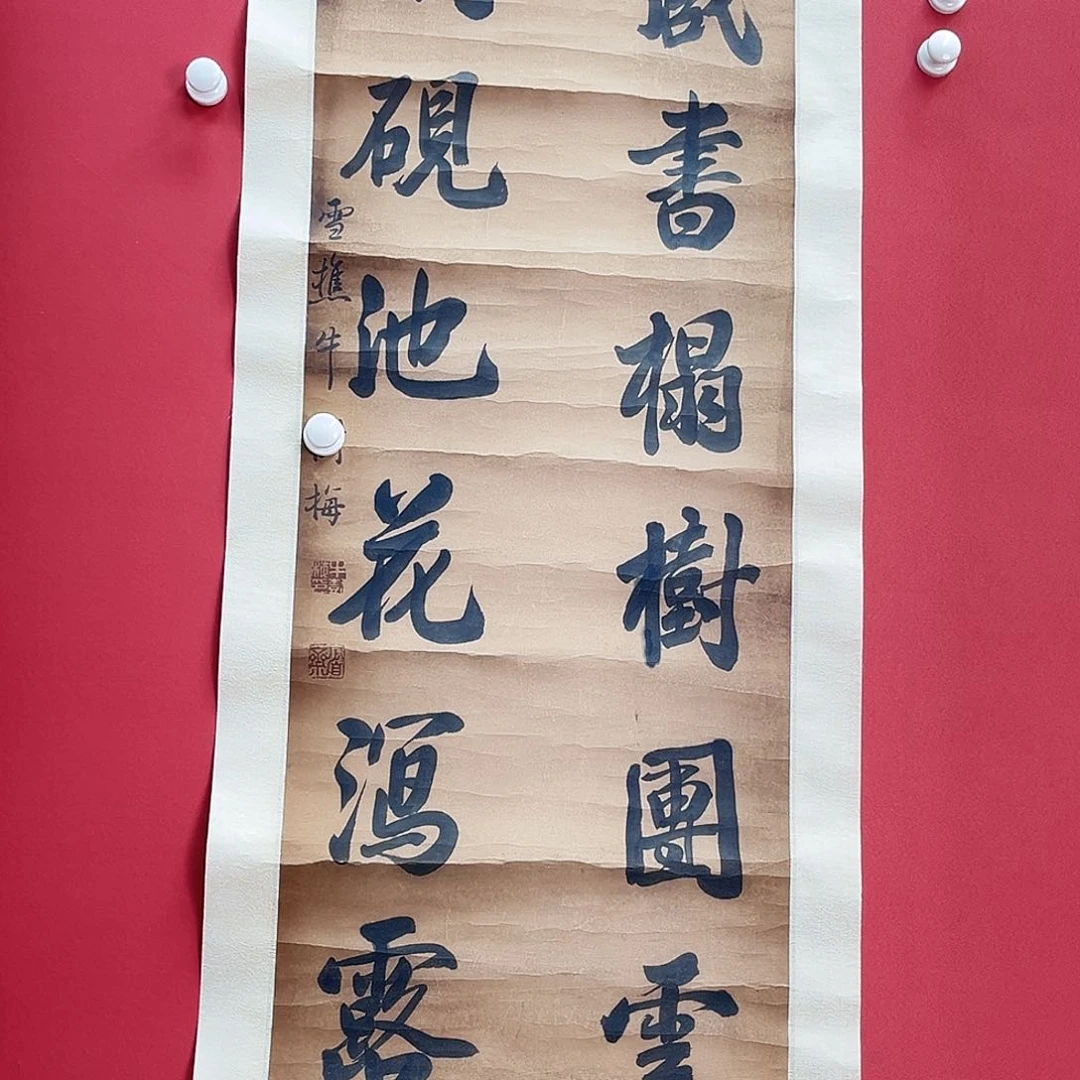 書榻樹團雲
硯池花瀉露
雪樵牛
梅